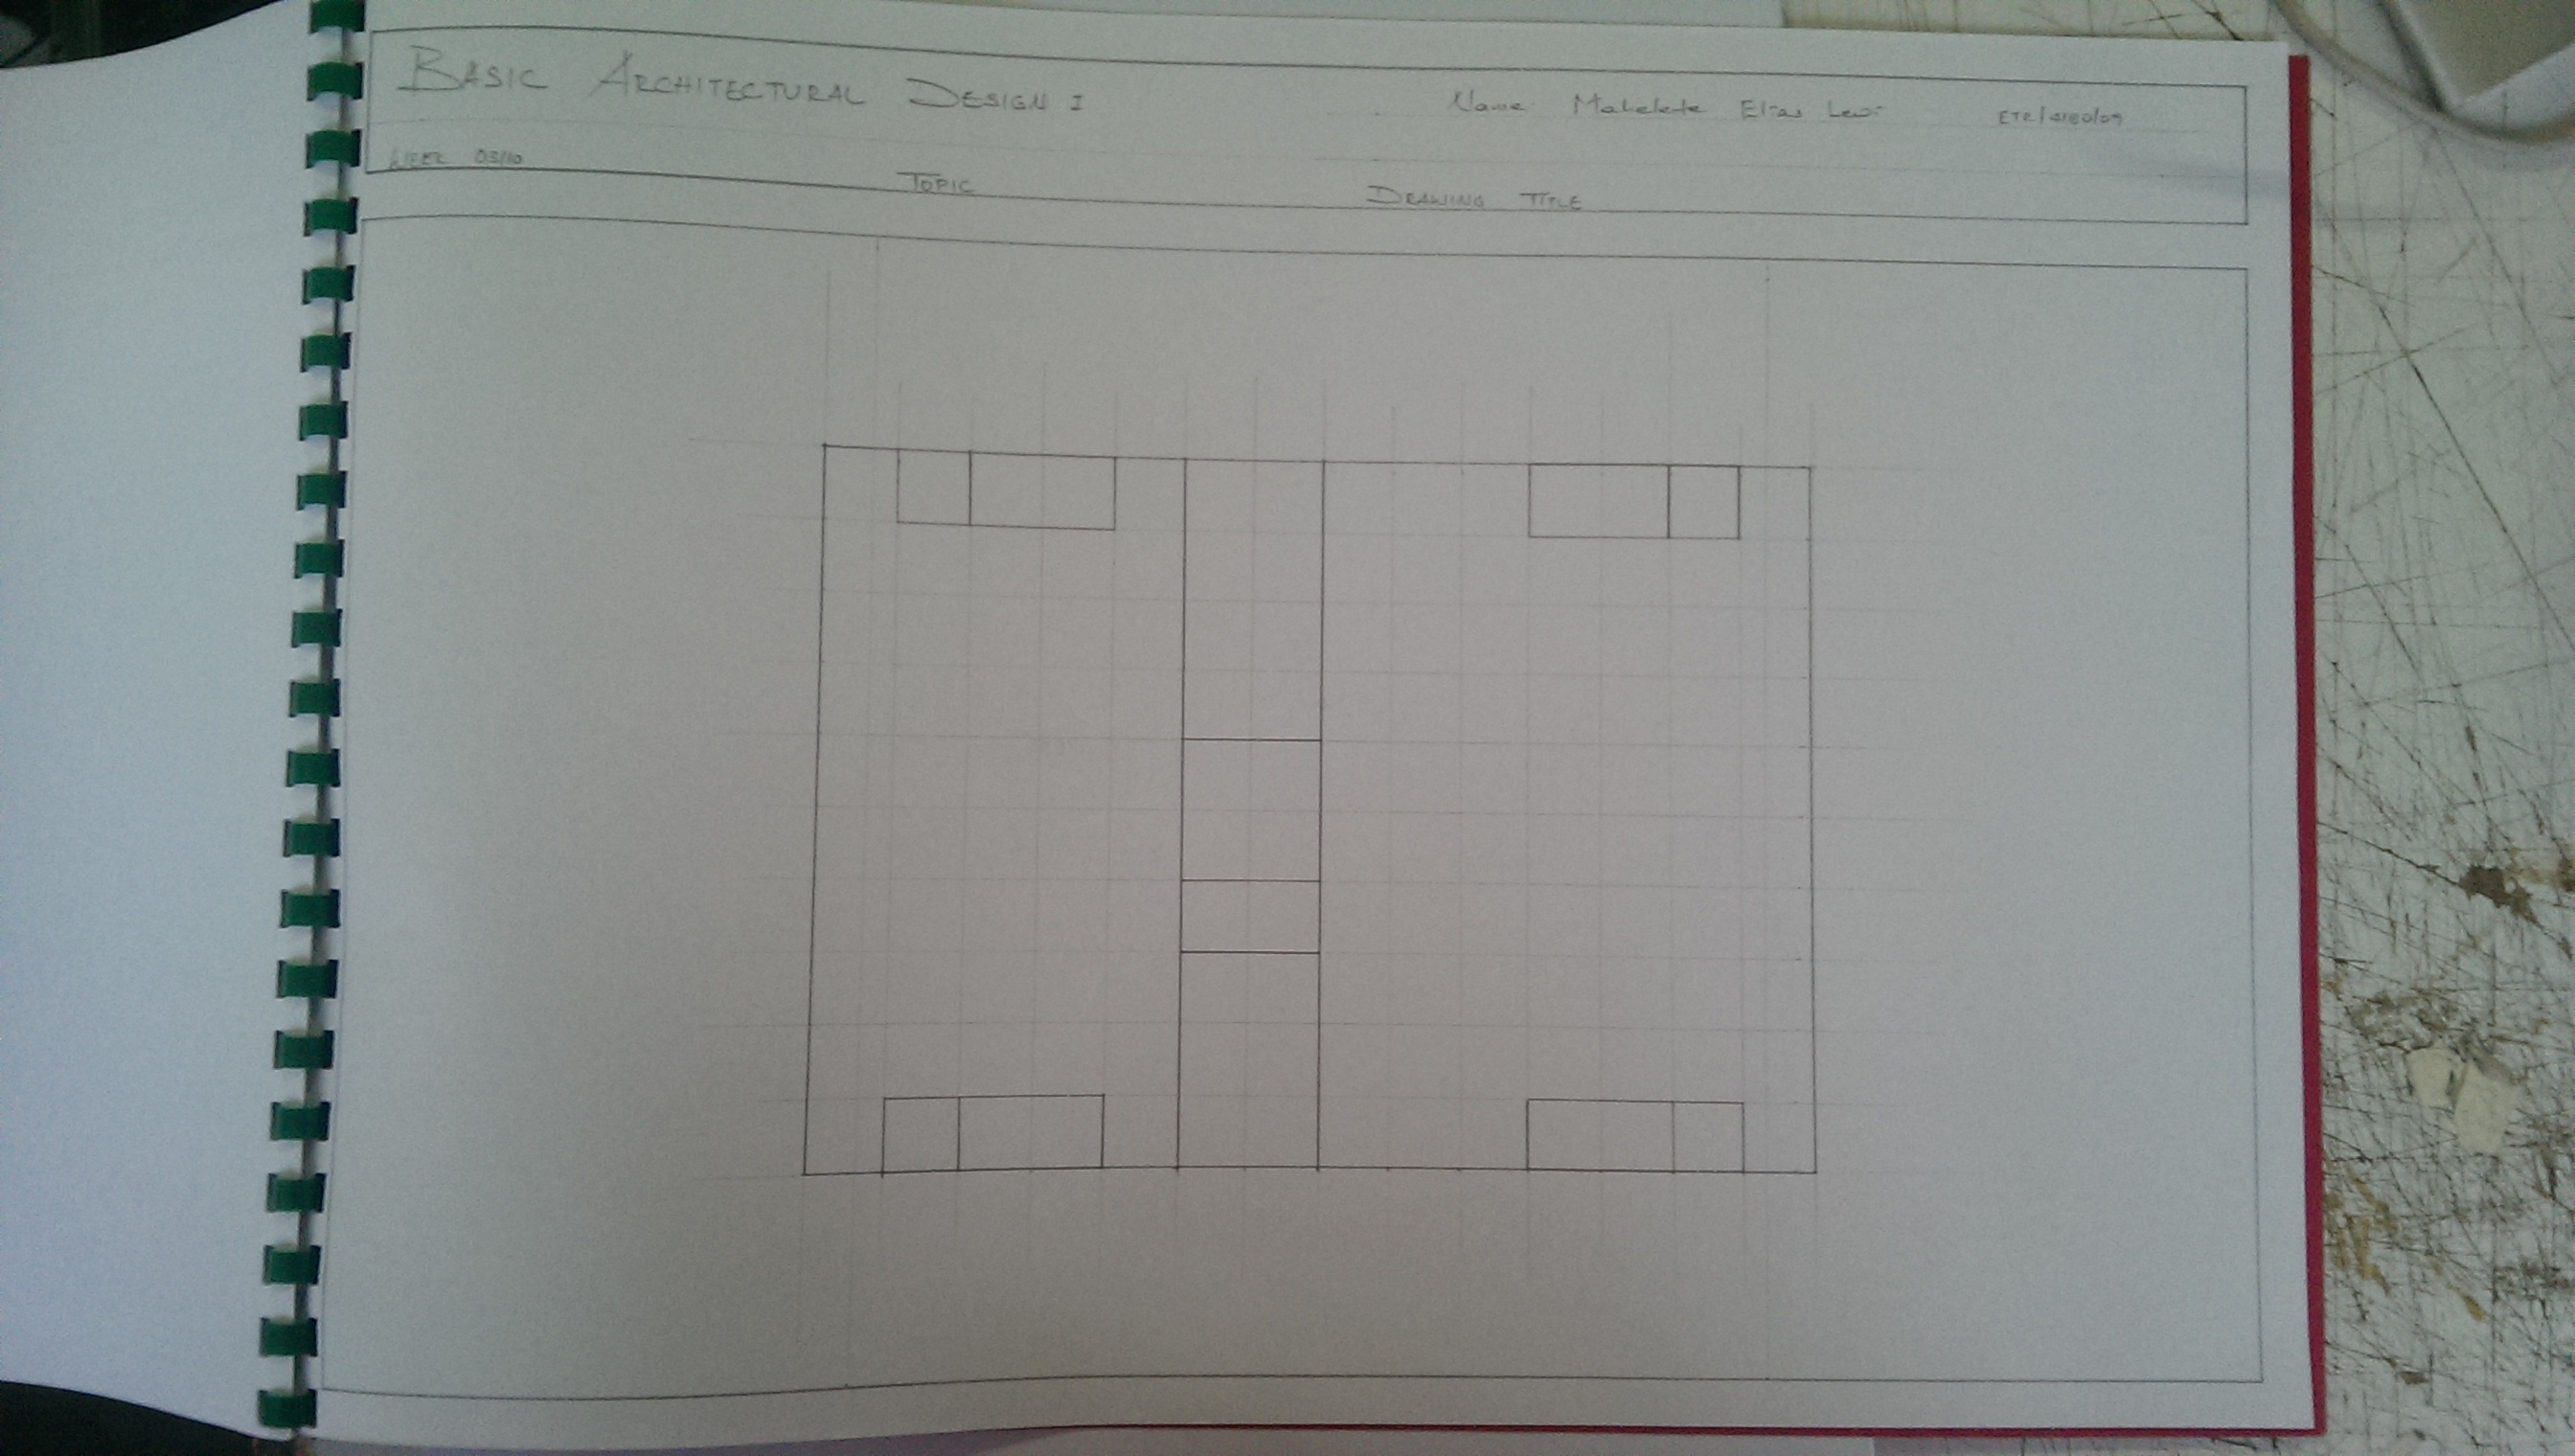 BASIC ARCHITECTURAL DESIGN I
Name: Mahelete Elias
WEEK 03/10
TOPIC
DRAWING TITLE